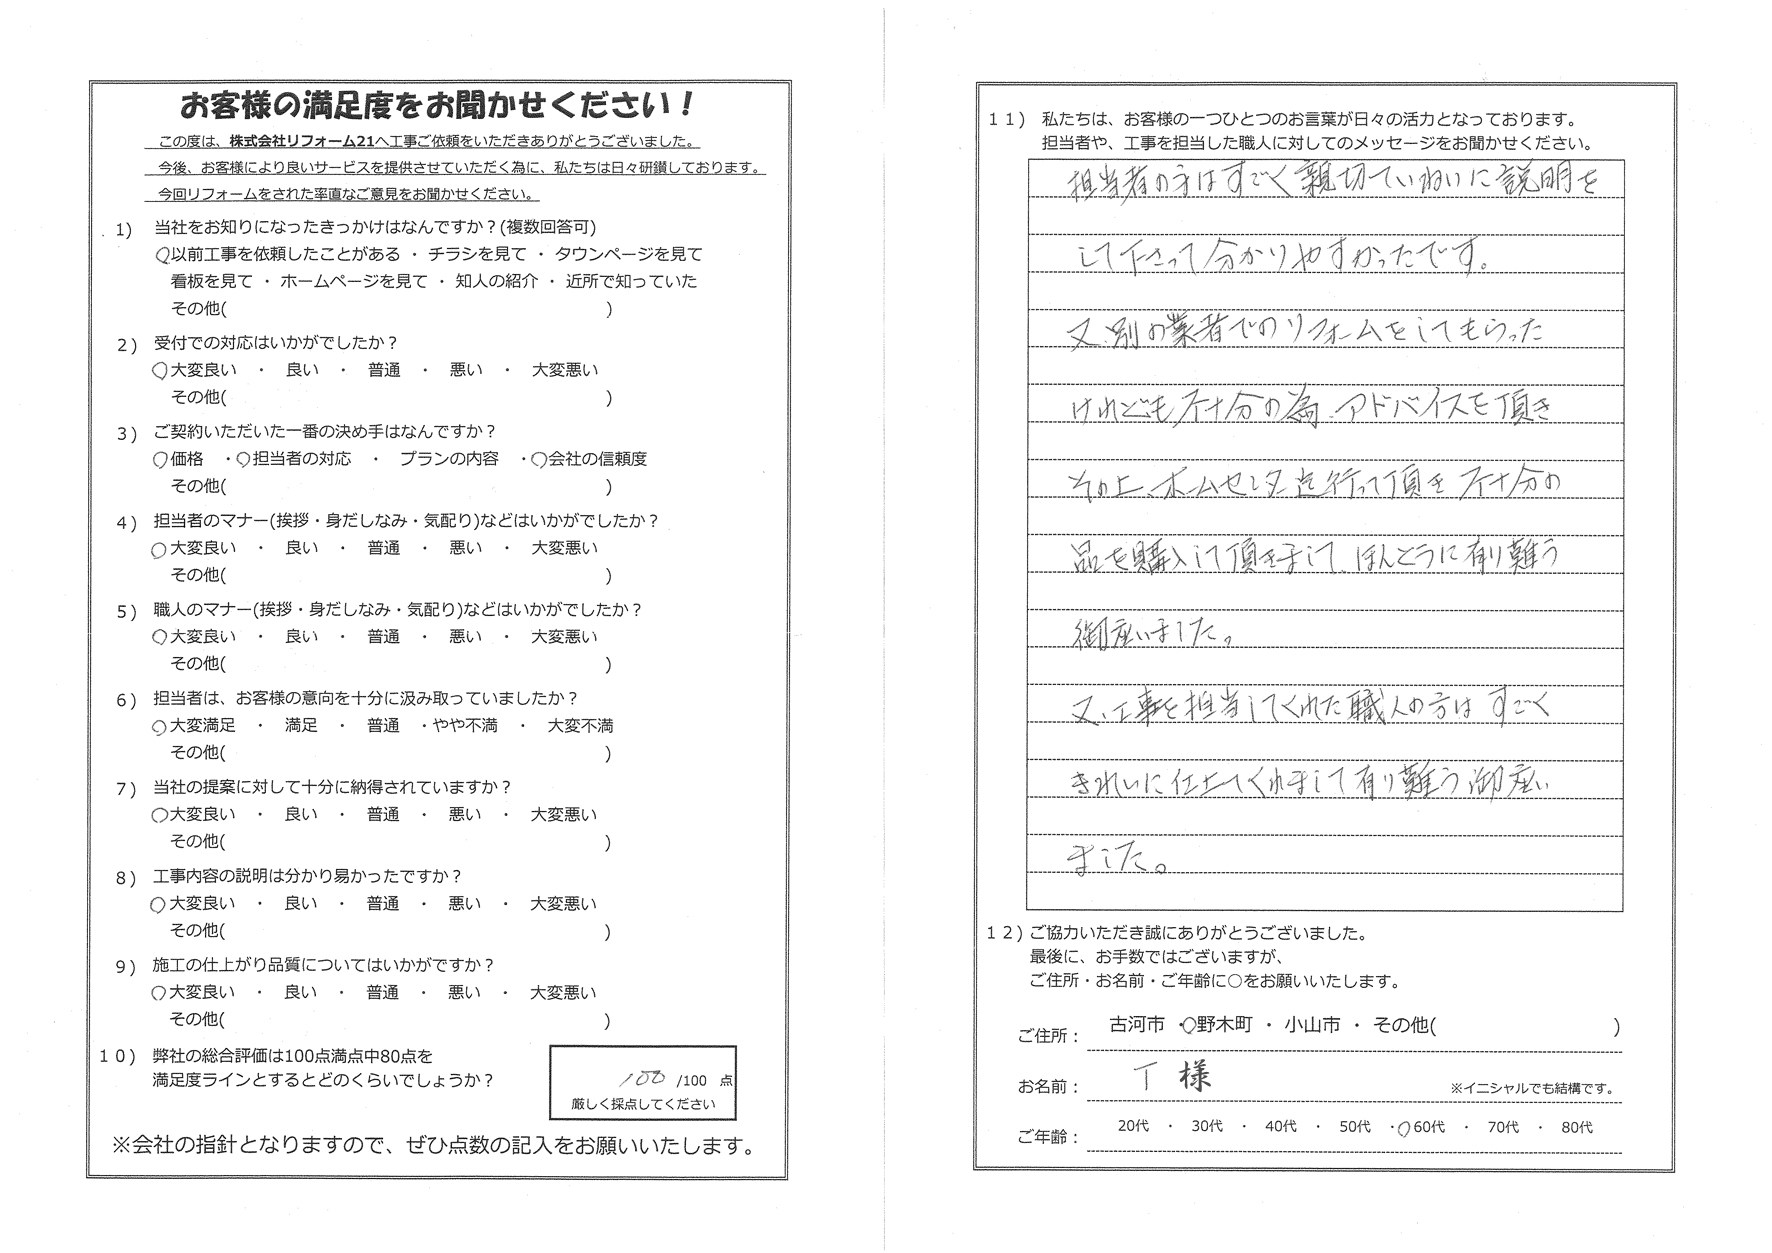 お客様の満足度をお聞かせください！
この度は、株式会社リフォーム21へ工事ご依頼をいただきありがとうございました。
今後、お客様により良いサービスを提供させていただく為に、私たちは日々研鑽しております。
今回リフォームをされた率直なご意見をお聞かせください。
1) 当社をお知りになったきっかけはなんですか？(複数回答可)
○以前工事を依頼したことがある ・ チラシを見て ・ タウンページを見て
看板を見て ・ ホームページを見て ・ 知人の紹介 ・ 近所で知っていた
その他( )
2) 受付での対応はいかがでしたか？
○大変良い ・ 良い ・ 普通 ・ 悪い ・ 大変悪い
その他( )
3) ご契約いただいた一番の決め手はなんですか？
○価格 ・○担当者の対応 ・ プランの内容 ・○会社の信頼度
その他( )
4) 担当者のマナー(挨拶・身だしなみ・気配り)などはいかがでしたか？
○大変良い ・ 良い ・ 普通 ・ 悪い ・ 大変悪い
その他( )
5) 職人のマナー(挨拶・身だしなみ・気配り)などはいかがでしたか？
○大変良い ・ 良い ・ 普通 ・ 悪い ・ 大変悪い
その他( )
6) 担当者は、お客様の意向を十分に汲み取っていましたか？
○大変満足 ・ 満足 ・ 普通 ・やや不満 ・ 大変不満
その他( )
7) 当社の提案に対して十分に納得されていますか？
○大変良い ・ 良い ・ 普通 ・ 悪い ・ 大変悪い
その他( )
8) 工事内容の説明は分かり易かったですか？
○大変良い ・ 良い ・ 普通 ・ 悪い ・ 大変悪い
その他( )
9) 施工の仕上がり品質についてはいかがですか？
○大変良い ・ 良い ・ 普通 ・ 悪い ・ 大変悪い
その他( )
10) 弊社の総合評価は100点満点中80点を
満足度ラインとするとどのくらいでしょうか？
100 /100 点
厳しく採点してください
※会社の指針となりますので、ぜひ点数の記入をお願いいたします。
11) 私たちは、お客様の一つひとつのお言葉が日々の活力となっております。
担当者や、工事を担当した職人に対してのメッセージをお聞かせください。
担当者の方はすごく親切ていねいに説明を
して下さって分かりやすかったです。
又、別の業者でのリフォームをしてもらった
けれども不十分の為、アドバイスを頂き
その上、ホームセンター迄行って頂き不十分の
品を購入して頂きまして、ほんとうに有り難う
御座いました。
又、工事を担当してくれた職人の方はすごく
きれいに仕上てくれまして有り難う御座い
ました。
12) ご協力いただき誠にありがとうございました。
最後に、お手数ではございますが、
ご住所・お名前・ご年齢に○をお願いいたします。
ご住所： 古河市 ・○野木町 ・ 小山市 ・ その他( )
お名前： T 様 ※イニシャルでも結構です。
ご年齢： 20代 ・ 30代 ・ 40代 ・ 50代 ・○60代 ・ 70代 ・ 80代